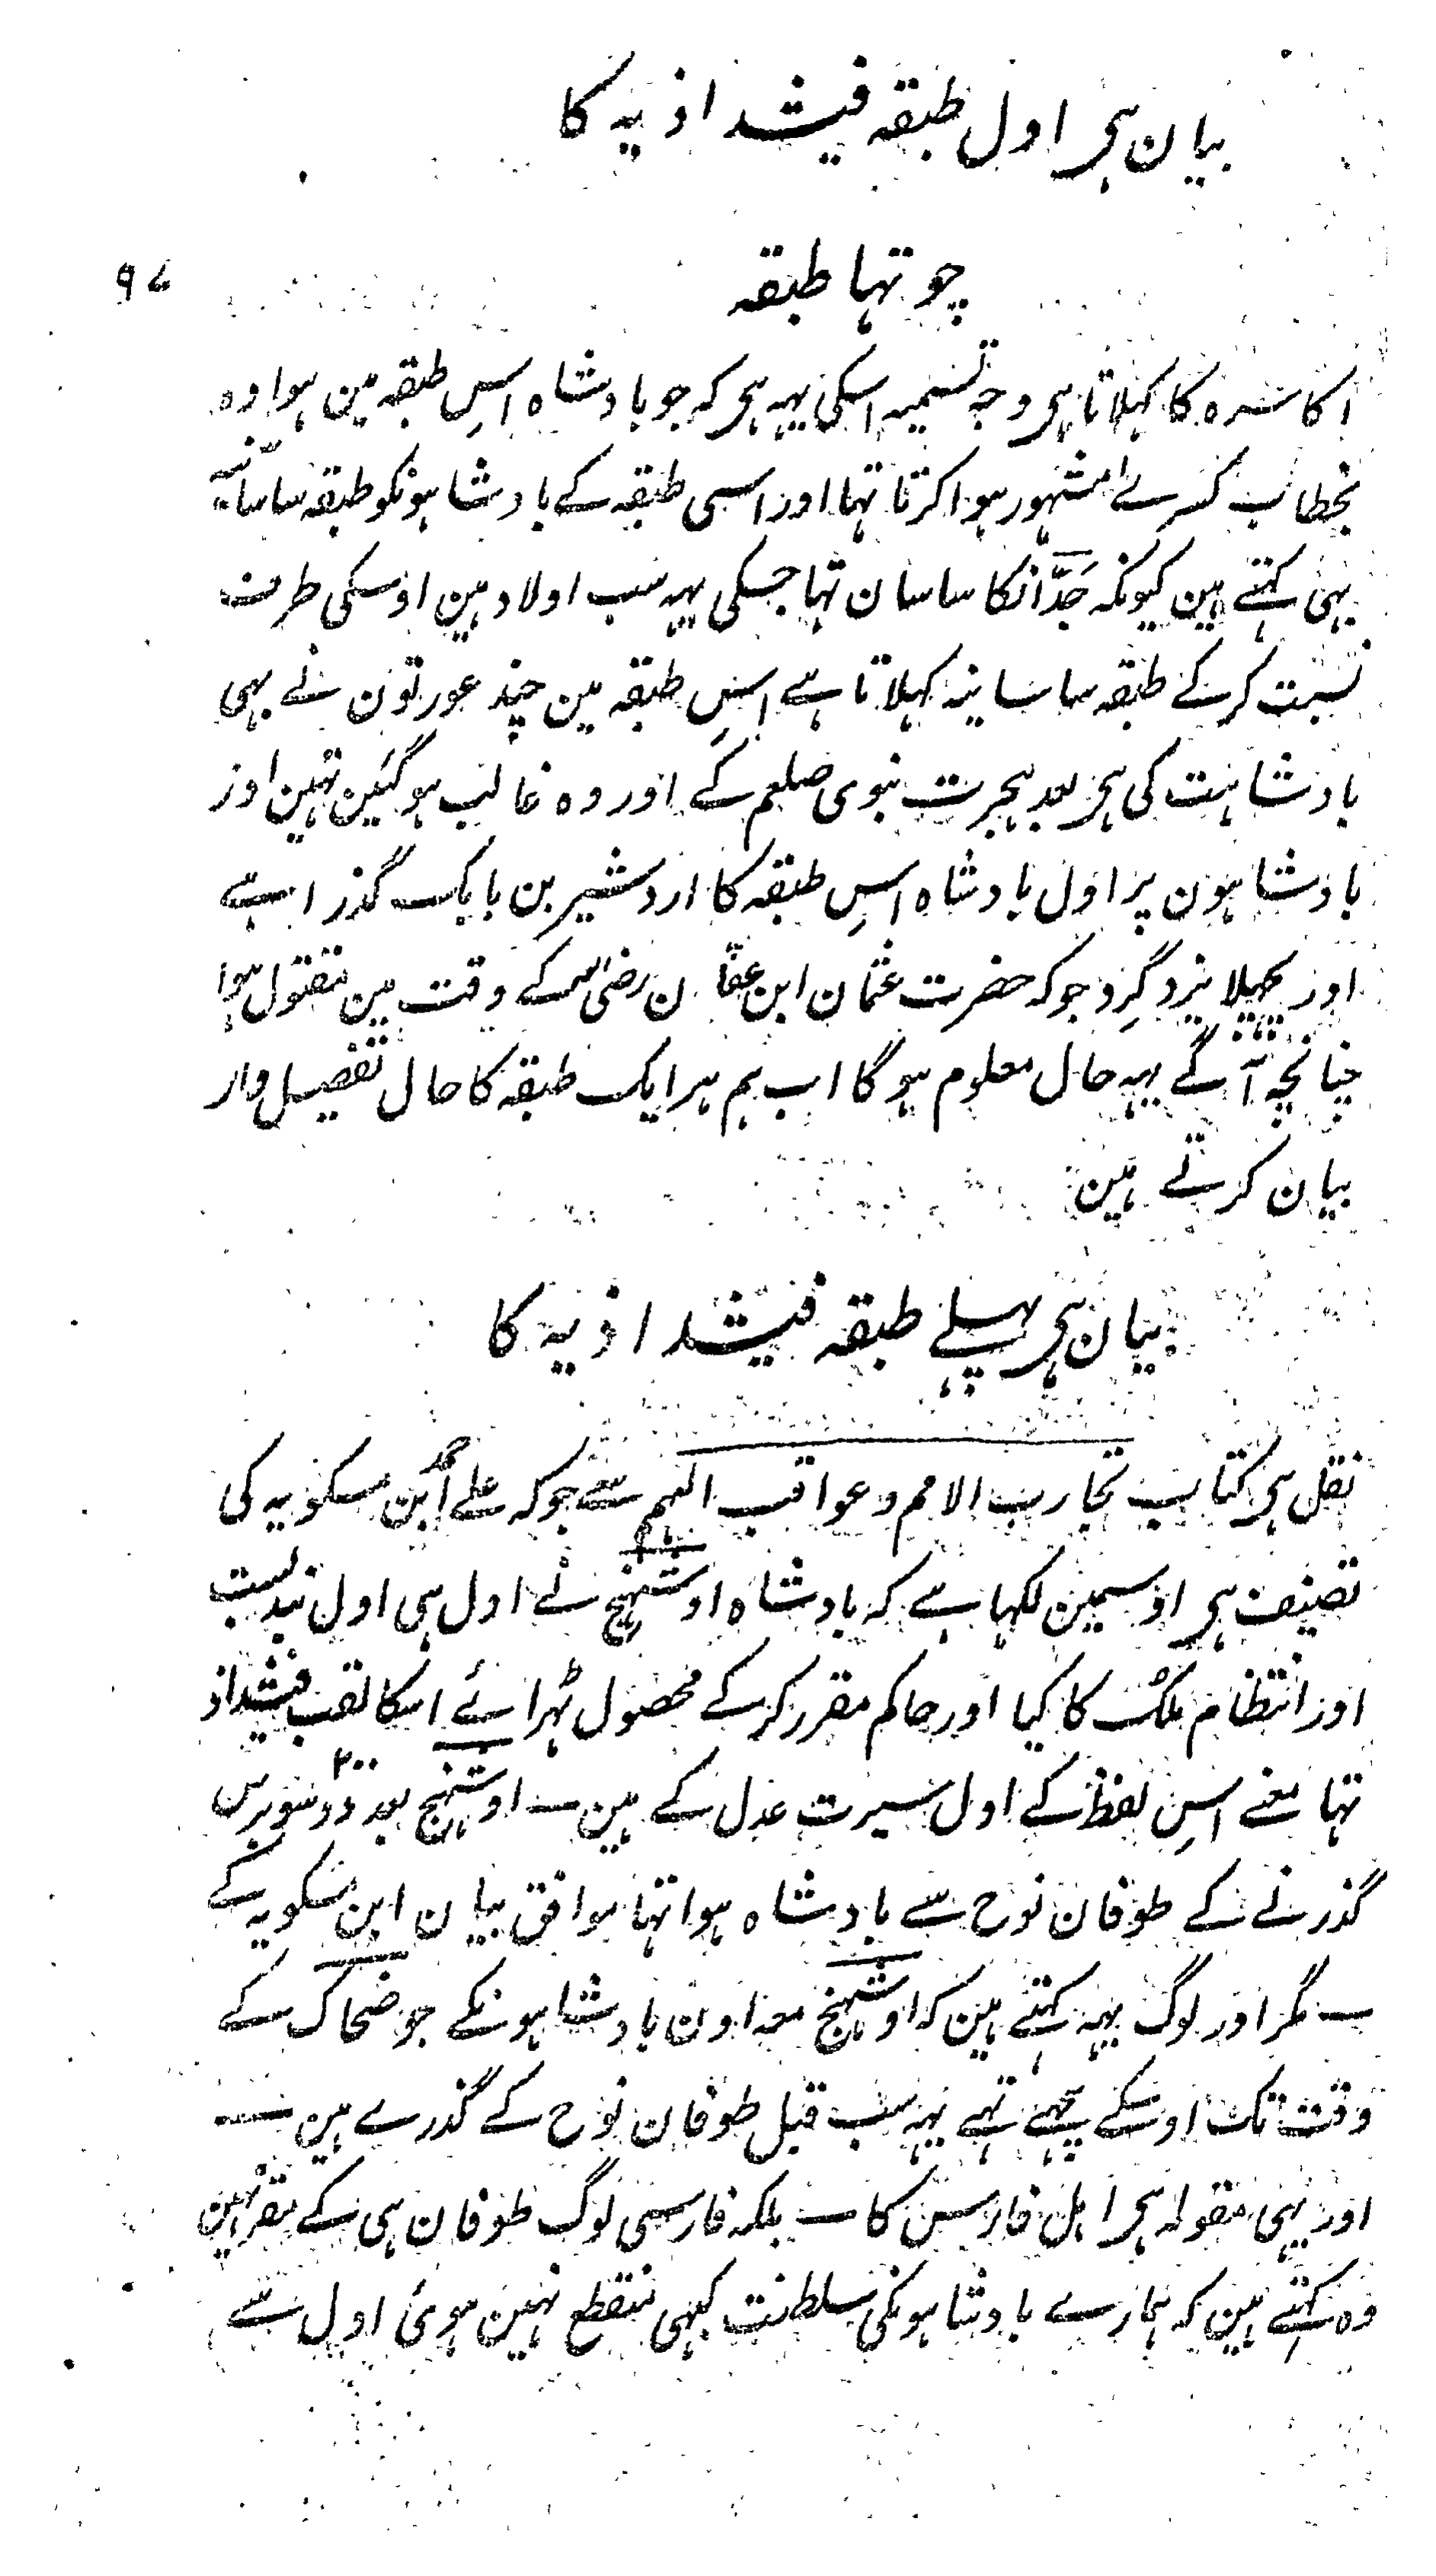 بیان ہی اول طبقہ فیشداذیہ کا
چوتہا طبقہ
۹۷
اکاسرہ کا کہلاتا ہی وجہ تسمیہ اسکی یہہ ہی کہ جو بادشاہ اسِ طبقہ مین ہوا وہ
بخطاب کسرےٰ مشہور ہوا کرتا تہا اور اسی طبقہ کے بادشاہونکو طبقہ ساسانیہ
بہی کہتے ہین کیونکہ جَدّ انکا ساسان تہا جسکی یہہ سب اولاد ہین اوسکی طرف
نسبت کرکے طبقہ ساسانیہ کہلاتا ہے اسِ طبقہ مین چند عورتون نے بہی
بادشاہت کی ہی بعد ہجرت نبوی صلعم کے اور وہ غالب ہوگئین تہین اور
بادشاہون پر اول بادشاہ اسِ طبقہ کا اردشیر بن بابک گذرا ہے
اور پچہلا یزدگرِد جو کہ حضرت عثمان ابن عفّان رضی اللہ کے وقت مین مقتول ہوا
چنانچہ آگے یہہ حال معلوم ہوگا اب ہم ہر ایک طبقہ کا حال تفصیل وار
بیان کرتے ہین
بیان ہی پہلے طبقہ فیشداذیہ کا
نقل ہی کتاب تجارب الامم وعواقب الہمم سے جو کہ علے احمد ابن مسکویہ کی
تصنیف ہی اوسمین لکہا ہے کہ بادشاہ اوشہنج نے اول ہی اول بندبست
اور انتظام ملک کا کیا اور حاکم مقرر کرکے محصول ٹہرائے اسکا لقب فیشداذ
تہا معنے اسِ لفظ کے اول سیرت عدل کے ہین ـ اوشہنج بعد دو سو ۲۰۰ برس
گذرنے کے طوفان نوح سے بادشاہ ہوا تہا موافق بیان ابن مسکویہ کے
ـ مگر اور لوگ یہہ کہتے ہین کہ اوشہنج معہ اون بادشاہونکے جو ضحاک کے
وقت تک اوسکے پیچہے تہے یہہ سب قبل طوفان نوح کے گذرے ہین ـ
اور یہی مقولہ ہی اہل فارس کا ـ بلکہ فارسی لوگ طوفان ہی کے مقر نہین
وہ کہتے ہین کہ ہمارے بادشاہونکی سلطنت کبہی منقطع نہین ہوئی اول سے